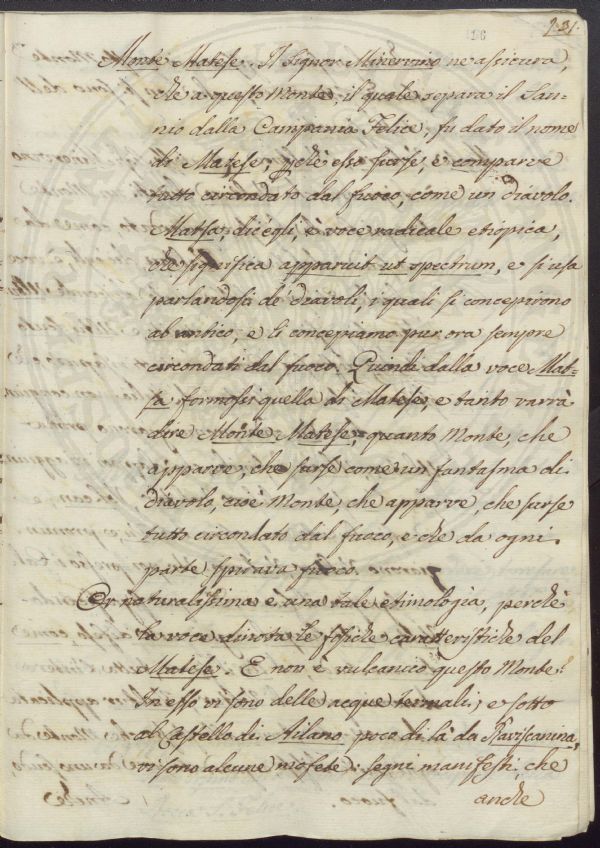 131.
Monte Matese. Il Signor Minervino ne assicura,
che a questo Monte, il quale separa il San-
nio dalla Campania Felice, fu dato il nome
di Matese, pchè esso surse, e comparve
tutto circondato dal fuoco, come un diavolo.
Matsa, dic'egli, è voce radicale etiopica,
che significa apparuit ut spectrum, e si usa
parlandosi de' diavoli, i quali si concepirono
ab antico, e li concepiamo pur ora sempre
circondati dal fuoco. Quindi dalla voce Mat-
sa formossi quella di Matese, e tanto varrà
dire Monte Matese, quanto Monte, che
apparve, che surse come un fantasma di
diavolo, cioè Monte, che apparve, che surse
tutto circondato dal fuoco, e che da ogni
parte spirava fuoco.
Or naturalissima è una tale etimologia, perchè
la voce dinota le fisiche caratteristiche del
Matese. E non è vulcanico questo Monte?
In esso vi sono delle acque termali; e sotto
al Castello di Ailano poco di là da Raviscanina,
vi sono alcune mofete: segni manifesti, che
anche